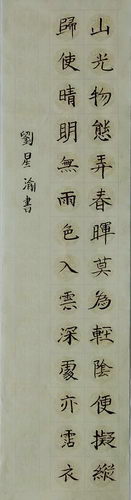 山光物態弄春暉莫為輕陰便擬縱
歸使晴明無雨色入雲深處亦霑衣
劉星書